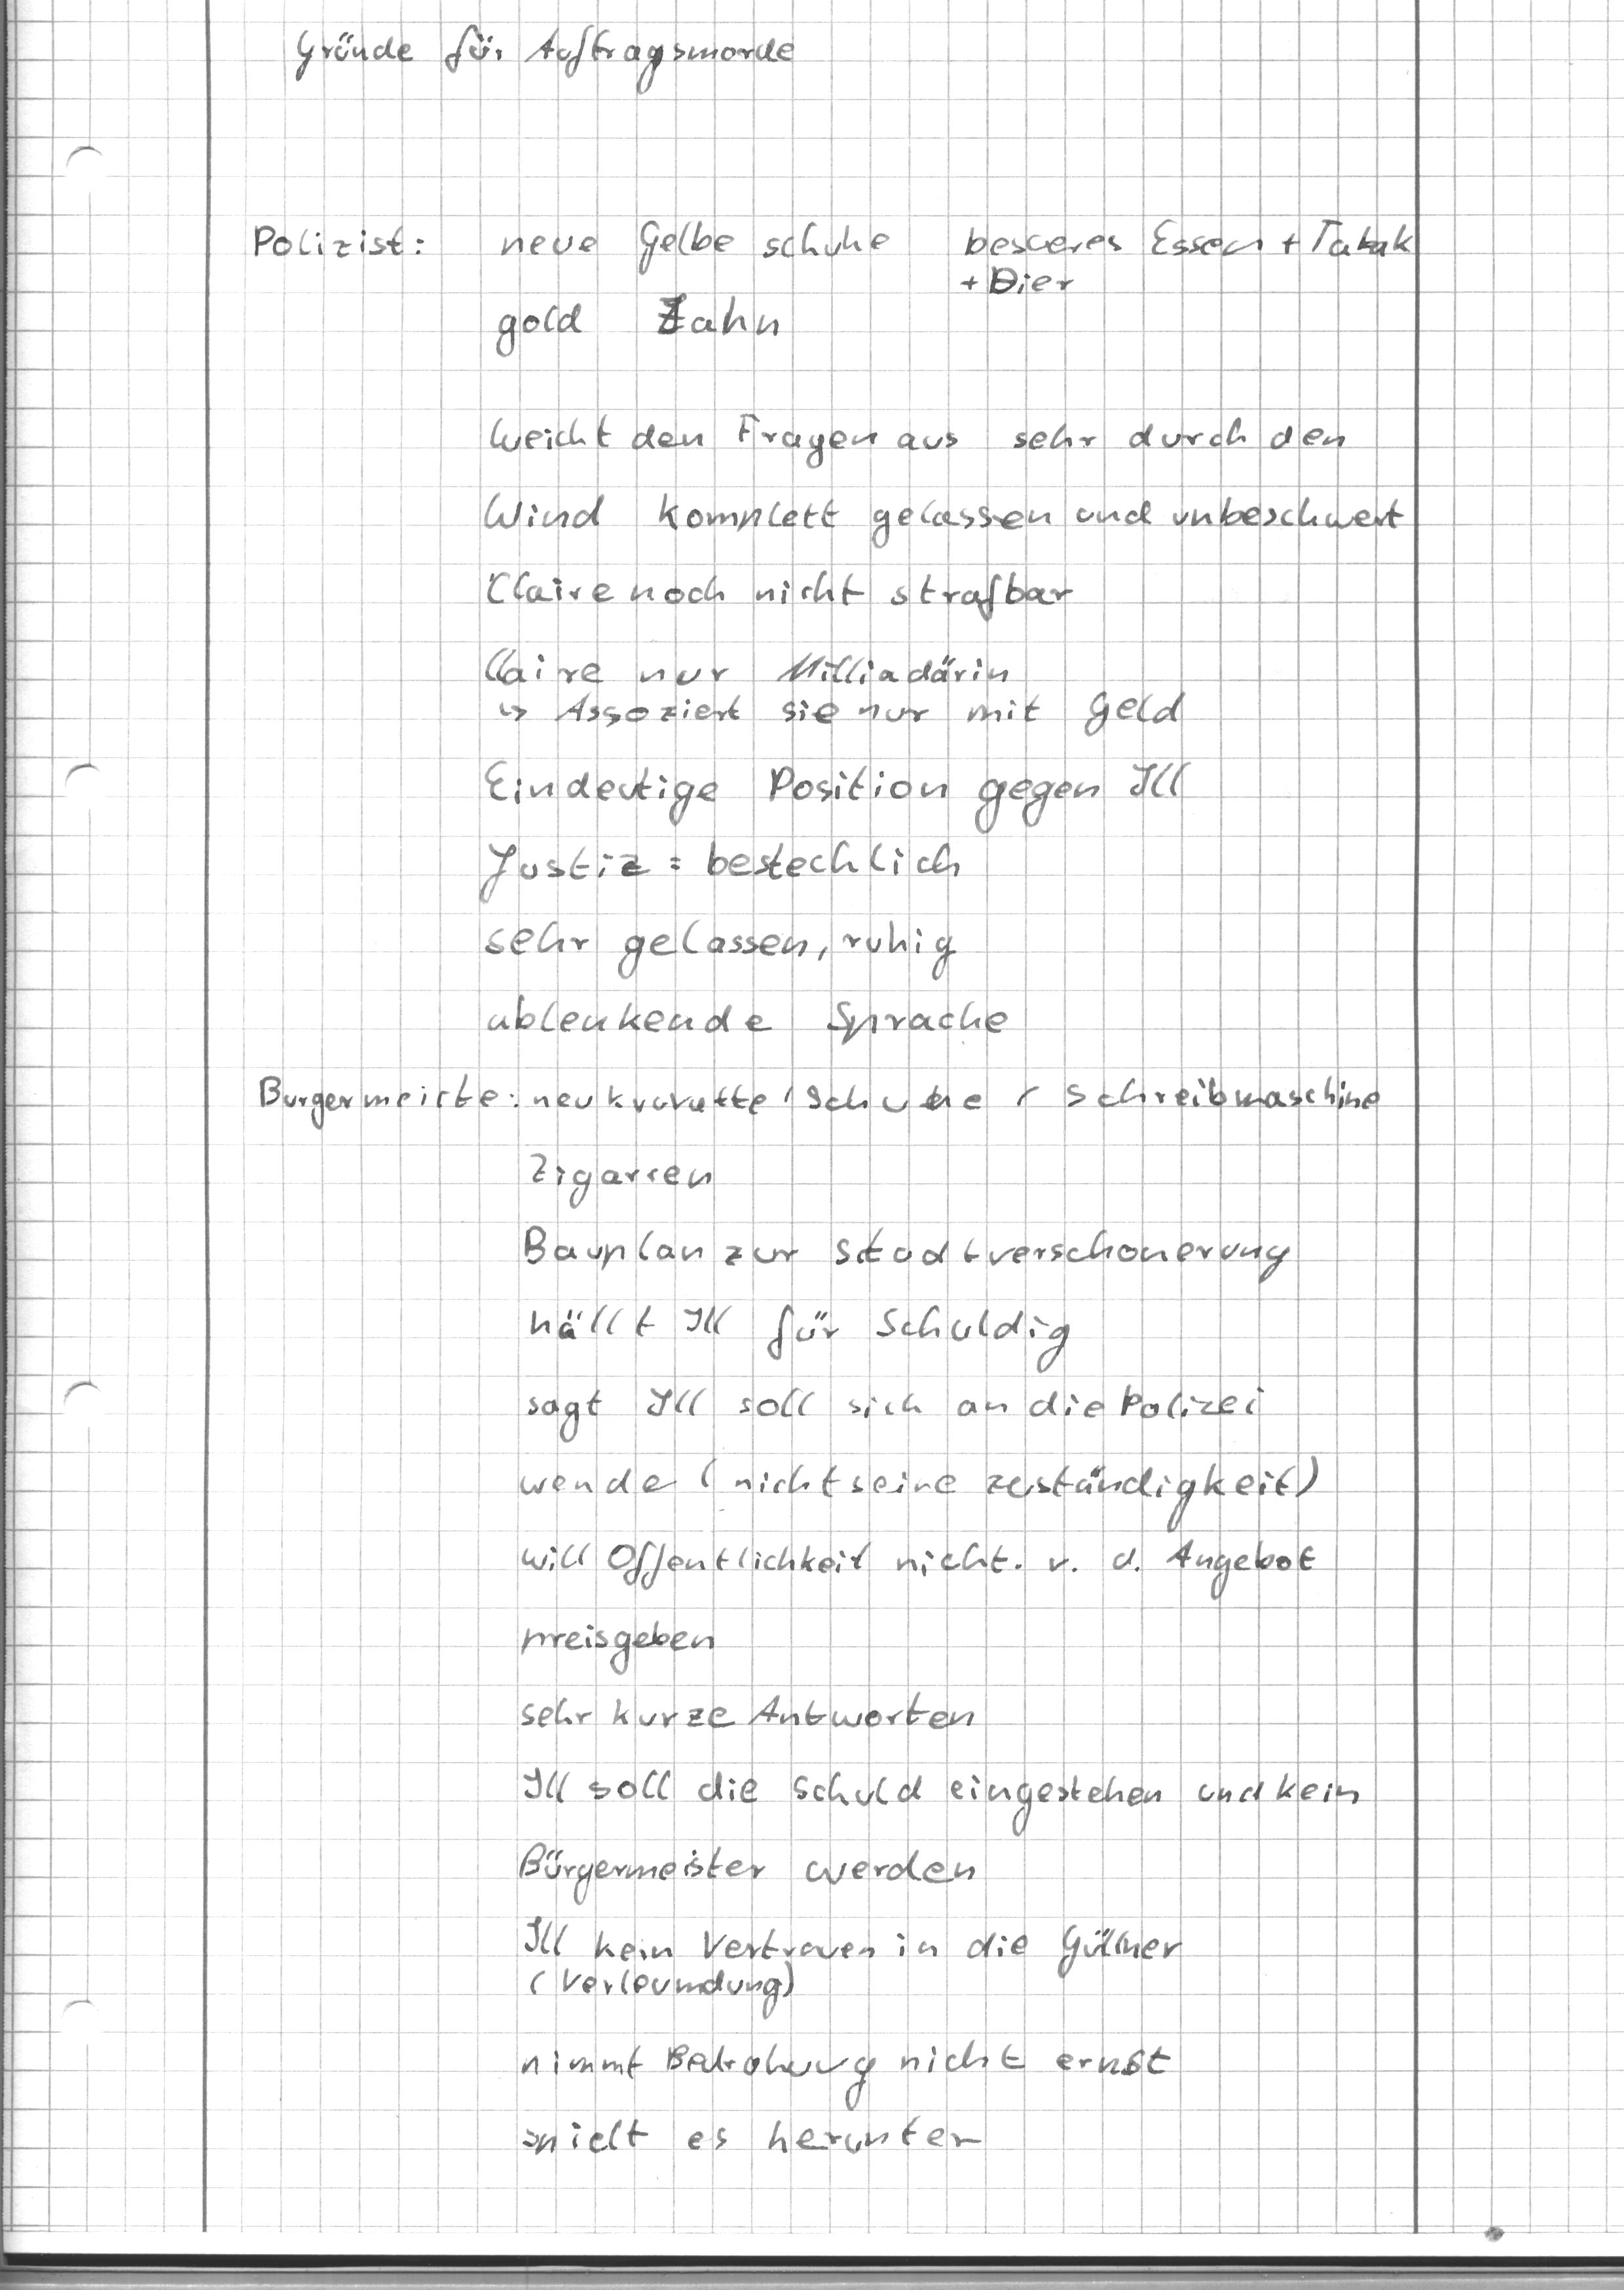 Gründe für Auftragsmorde
Polizist: neue Gelbe schuhe besseres Essen + Tabak
+ Bier
gold Zahn
Weicht den Fragen aus sehr durch den
Wind komplett gelassen und unbeschwert
Claire noch nicht strafbar
Claire nur Milliadärin
↳ Assoziert sie nur mit Geld
Eindeutige Position gegen Ill
Justiz = bestechlich
sehr gelassen, ruhig
ablenkende Sprache
Burgermeiste: neu kravatte / Schuhe / Schreibmaschine
Zigarren
Bauplan zur Stadtverschonerung
hällt Ill für Schuldig
sagt Ill soll sich an die Polizei
wende (nicht seine zuständigkeit)
will Offentlichkeit nicht. v. d. Angebot
preisgeben
sehr kurze Antworten
Ill soll die Schuld eingestehen und kein
Bürgermeister werden
Ill kein Vertrauen in die Güllner
(Verleumdung)
nimmt Bedrohung nicht ernst
spielt es herunter